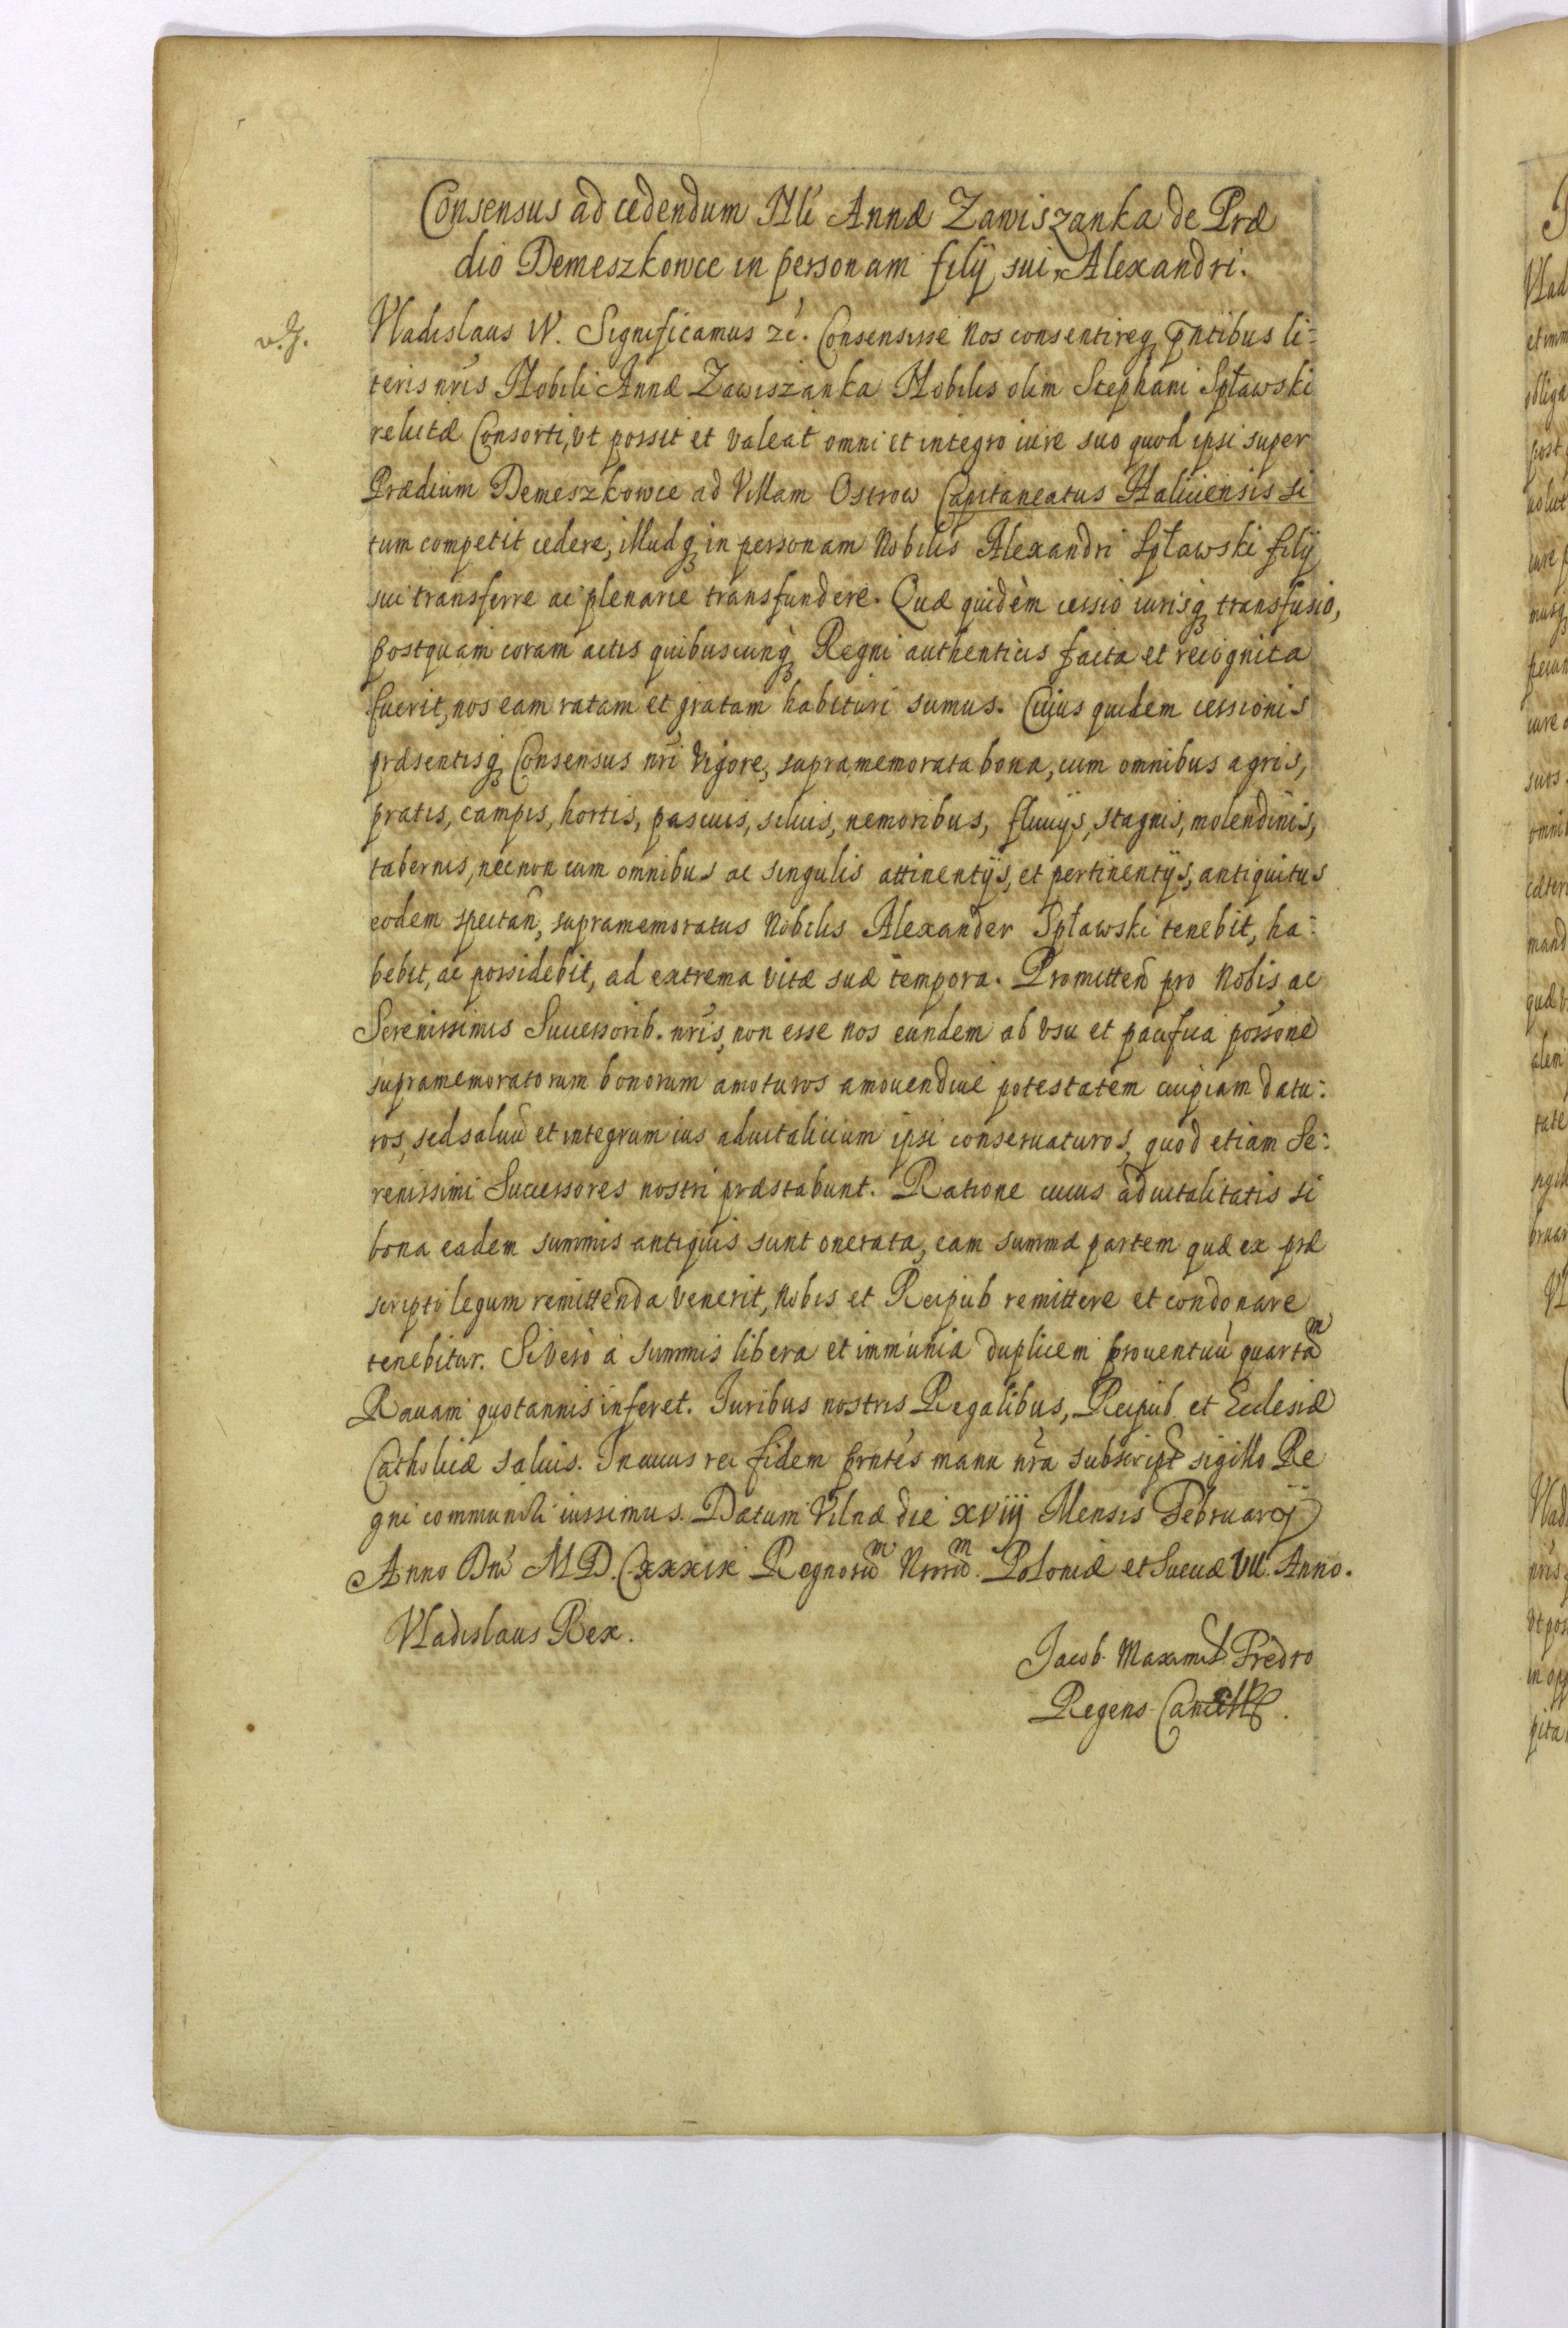 Consensus ad cedendum Nli Annæ Zawiszanka de Præ
dio Demeszkowce in personam filij sui Alexandri.
Vladislaus IV. Significamus zc. Consensisse Nos consentireq pntibus li=
teris nris Nobili Annæ Zawiszanka Nobilis olim Stephani Spławski
relictæ Consorti, vt possit et valeat omni et integro iure suo quod ipsi super
Prædium Demeszkowce ad Villam Ostrow Capitaneatus Haliciensis si
tum competit cedere, illudq in personam Nobilis Alexandri Spławski filij
sui transferre ac plenarie transfundere. Quæ quidem cessio iurisq transfusio,
postquam coram actis quibuscunq Regni authenticis facta et recognita
fuerit, nos eam ratam et gratam habituri sumus. Cuius quidem cessionis
præsentisq Consensus nri vigore, supramemorata bona, cum omnibus agris,
pratis, campis, hortis, pascuis, siluis, nemoribus, fluuijs, stagnis, molendinis,
tabernis, necnon cum omnibus ac singulis attinentijs, et pertinentijs, antiquitus
eodem spectan, supramemoratus Nobilis Alexander Spławski tenebit, ha=
bebit, ac possidebit, ad extrema vitæ suæ tempora. Promitten pro Nobis ac
Serenissimis Successorib. nris, non esse nos eundem ab vsu et pacifica possone
supramemoratorum bonorum amoturos amouendiue potestatem cuipiam datu=
ros, sed saluu et integrum ius aduitalicium ipsi conseruaturos, quod etiam Se=
renissimi Successores nostri præstabunt. Ratione cuius aduitalitatis si
bona eadem summis antiquis sunt onerata, eam summæ partem quæ ex præ
scripto legum remittenda venerit, Nobis et Reipub remittere et condonare
tenebitur. Si vero à summis libera et immunia duplicem prouentuu quartam
Rauam quotannis inferet. Iuribus nostris Regalibus, Reipub et Ecclesiæ
Catholicæ saluis. In cuius rei fidem pntes manu nra subscript sigillo Re
gni communiri iussimus. Datum Vilnæ die xviij Mensis Februarij
Anno Dni M D.Cxxxix Regnorum Nrorum. Poloniæ et Sueciæ VII. Anno.
Vladislaus Rex.
Jacob. Maximil. Fredro
Regens Cancell.